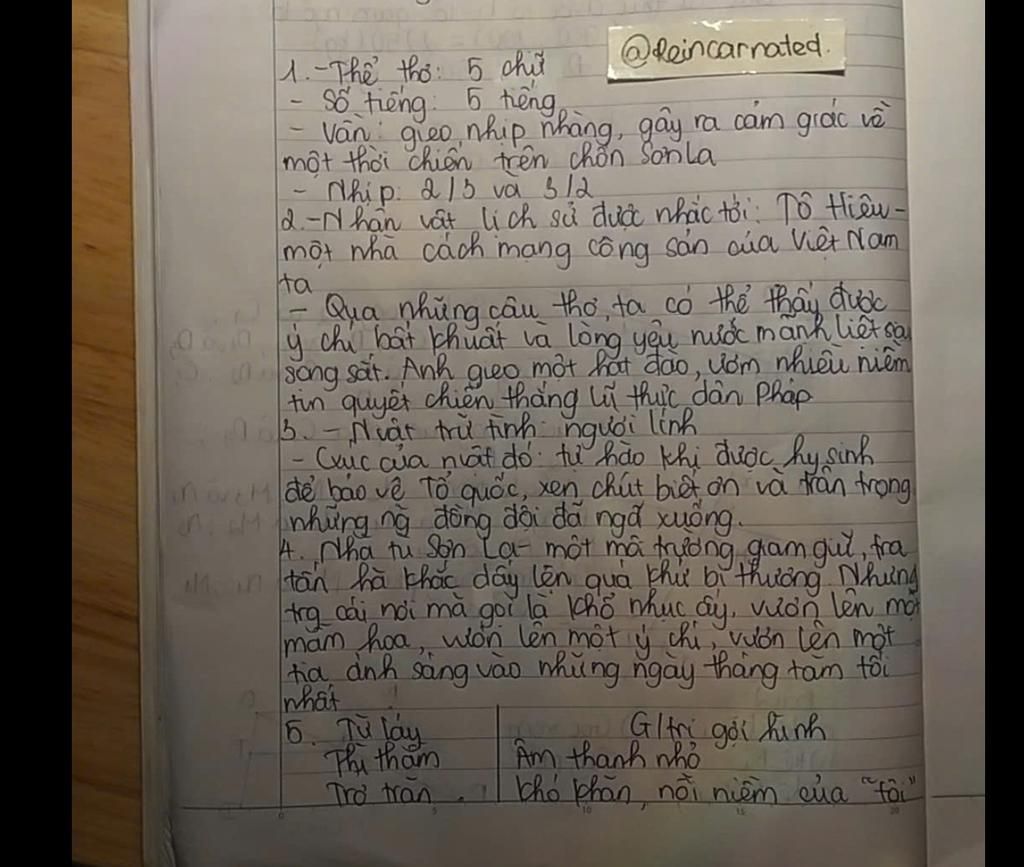 @Reincarnated.
1. - Thể thơ: 5 chữ
- Số tiếng: 5 tiếng
- Vần: gieo, nhịp nhàng, gây ra cảm giác về
một thời chiến trên chốn Sơn La
- Nhịp: 2/3 và 3/2
2. - Nhân vật lịch sử được nhắc tới: Tô Hiệu -
một nhà cách mạng cộng sản của Việt Nam
ta
- Qua những câu thơ, ta có thể thấy được
ý chí bất khuất và lòng yêu nước mãnh liệt
song sắt. Anh gieo một hạt đào, ươm nhiều niềm
tin quyết chiến thắng lũ thực dân Pháp
3. - Nvật trữ tình: người lính
- Cxúc của nvật đó: tự hào khi được hy sinh
để bảo vệ Tổ quốc, xen chút biết ơn và trân trọng
những ng đồng đội đã ngã xuống.
4. Nhà tù Sơn La - một môi trường giam giữ, tra
tấn hà khắc dấy lên quá khứ bi thương. Nhưng
trg cái nơi mà gọi là khổ nhục ấy, vươn lên một
mầm hoa, vươn lên một ý chí, vươn lên một
tia ánh sáng vào những ngày tháng tăm tối
nhất
5. Từ láy G/trị gợi hình
Thì thầm Âm thanh nhỏ
Trơ trần khó khăn, nỗi niềm của "tôi"